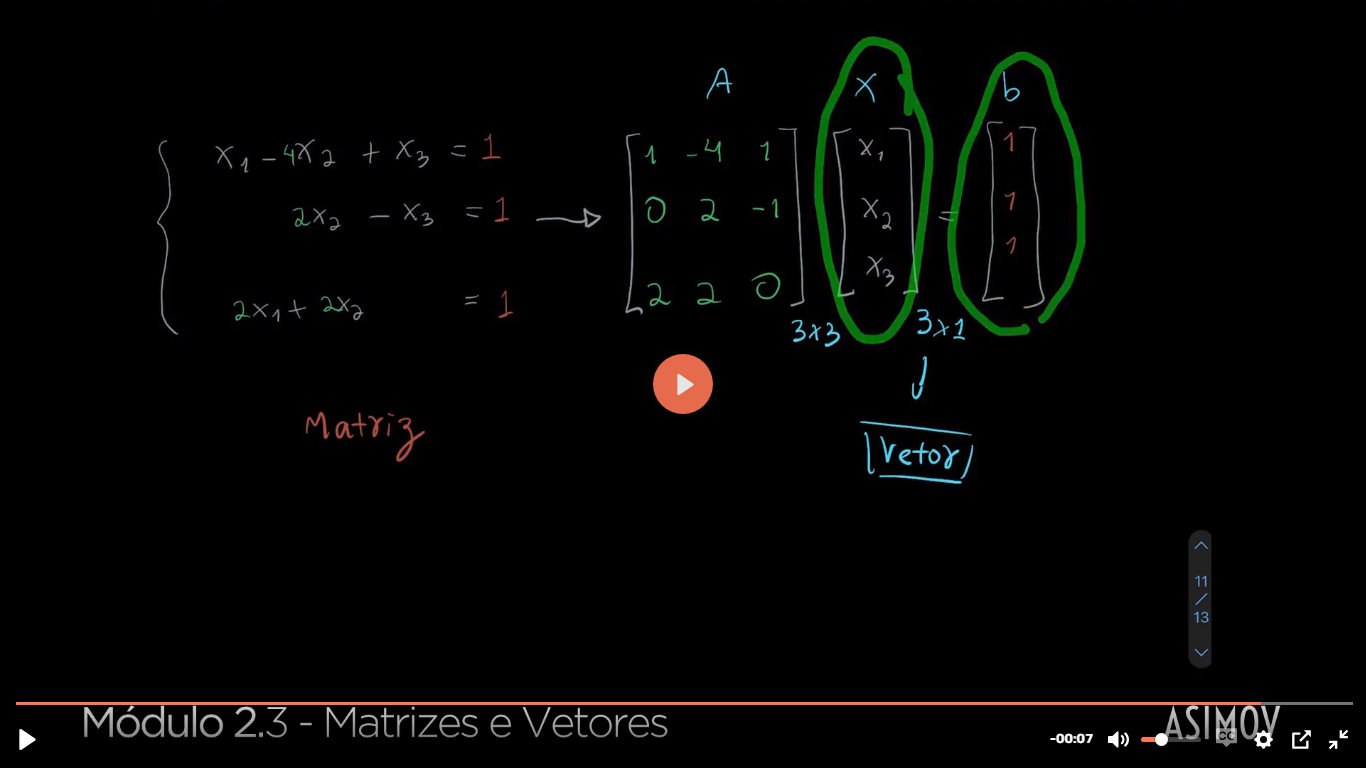 A x b
x₁ - 4x₂ + x₃ = 1
2x₂ - x₃ = 1
2x₁ + 2x₂ = 1
1 -4 1
0 2 -1
2 2 0
x₁
x₂
x₃
=
1
1
1
3x3
3x1
Matriz
Vetor
11
/
13
Módulo 2.3 - Matrizes e Vetores
ASIMOV
-00:07
CC